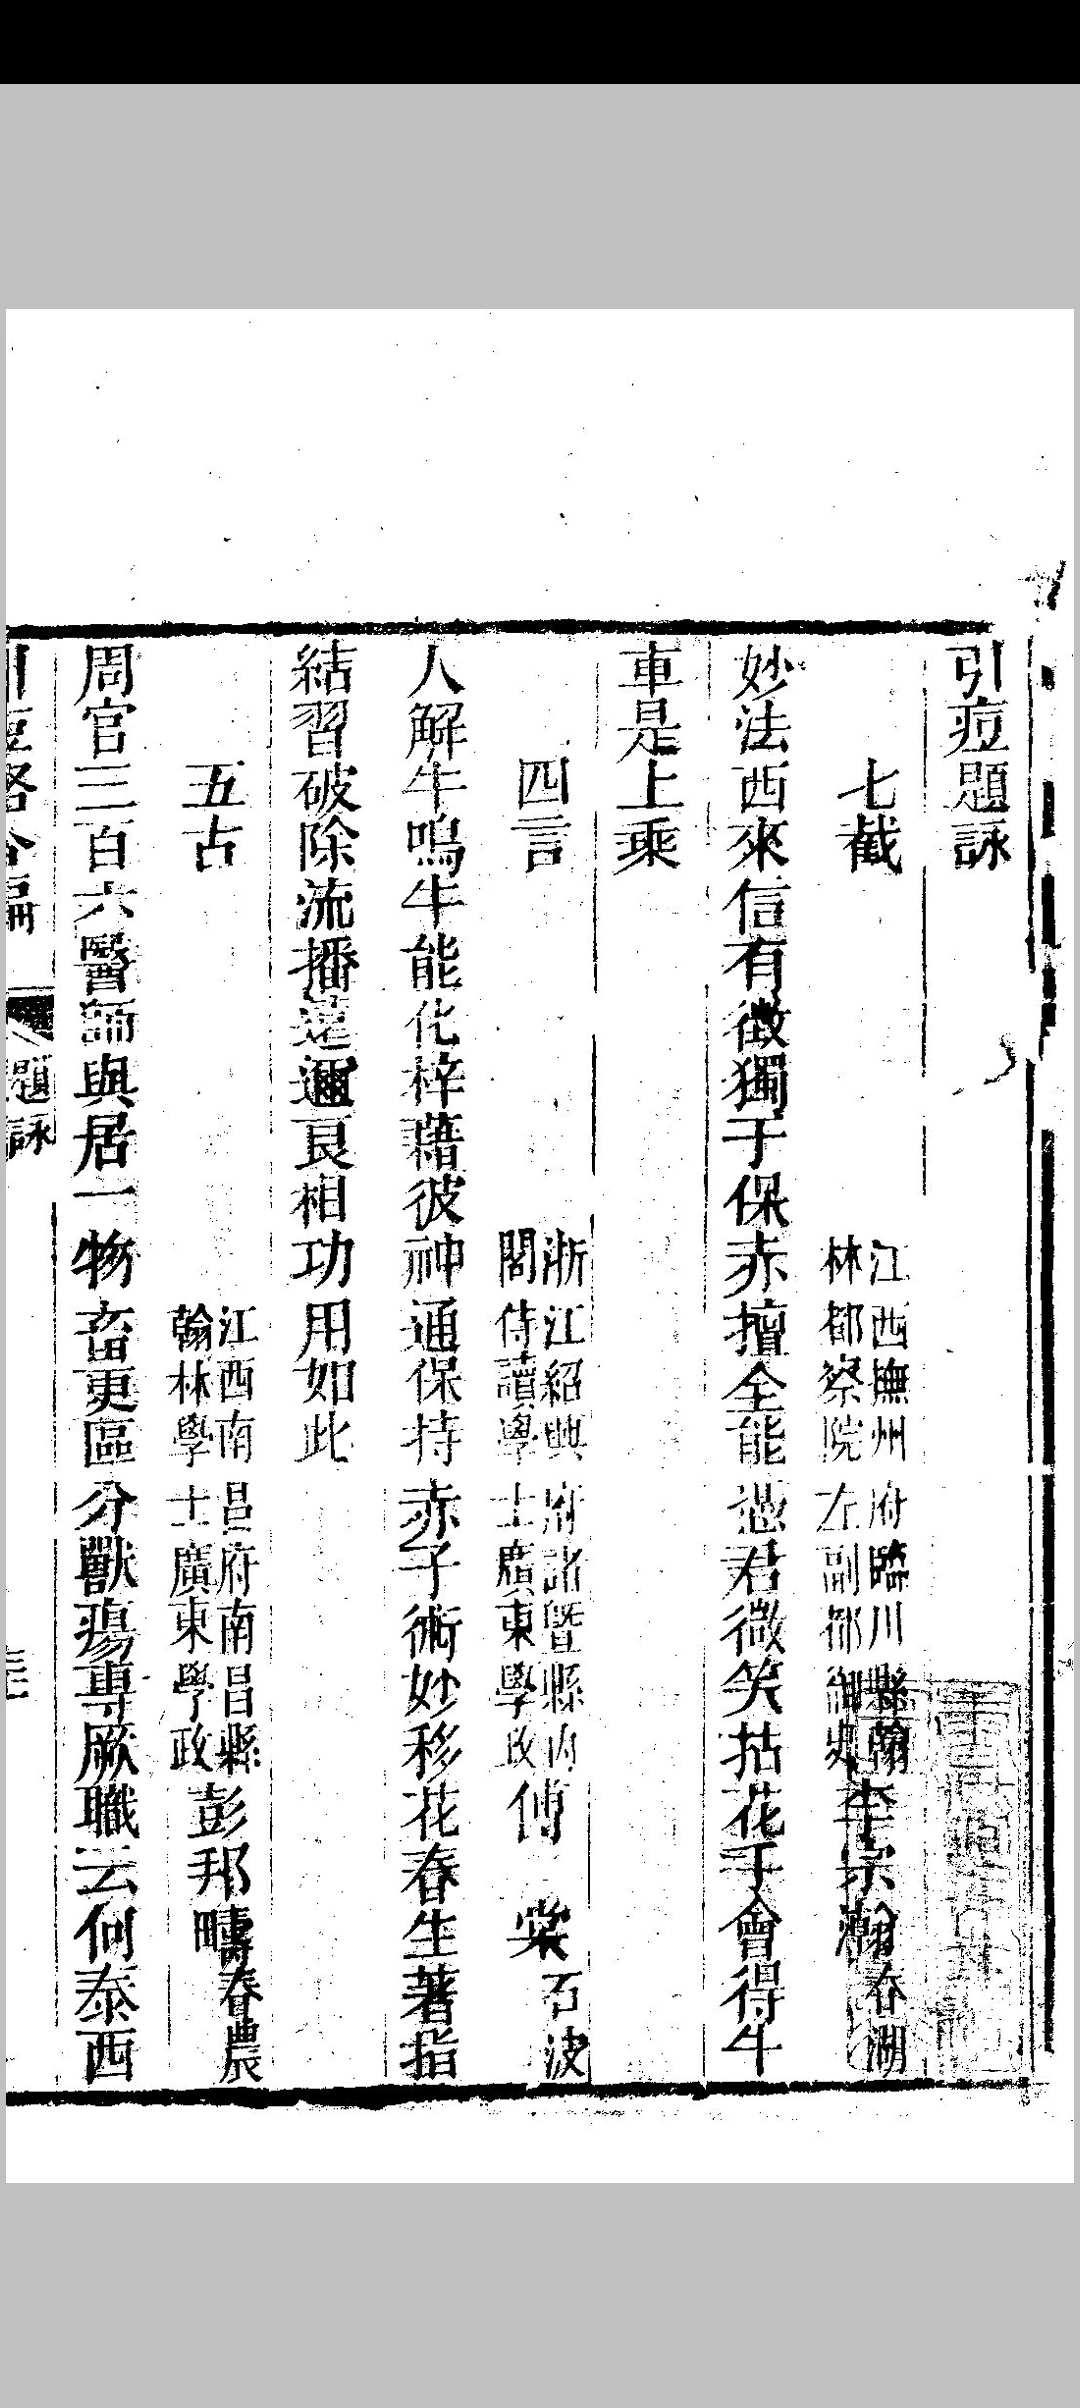 引痘題詠
七截
江西撫州府臨川縣翰
林都察院左副都御史
李宗瀚春湖
妙法西來信有徵獨于保赤擅全能憑君微笑拈花手會得牛
車是上乘
四言
浙江紹興府諸暨縣內
閣侍讀學士廣東學政
傅棠石波
人解牛鳴牛能化梓藉彼神通保持赤子術妙移花春生著指
結習破除流播遠邇良相功用如此
五古
江西南昌府南昌縣
翰林學士廣東學政
彭邦疇春農
周官三百六醫師與居一物畜更區分獸瘍專厥職云何泰西
引痘略合編
題詠